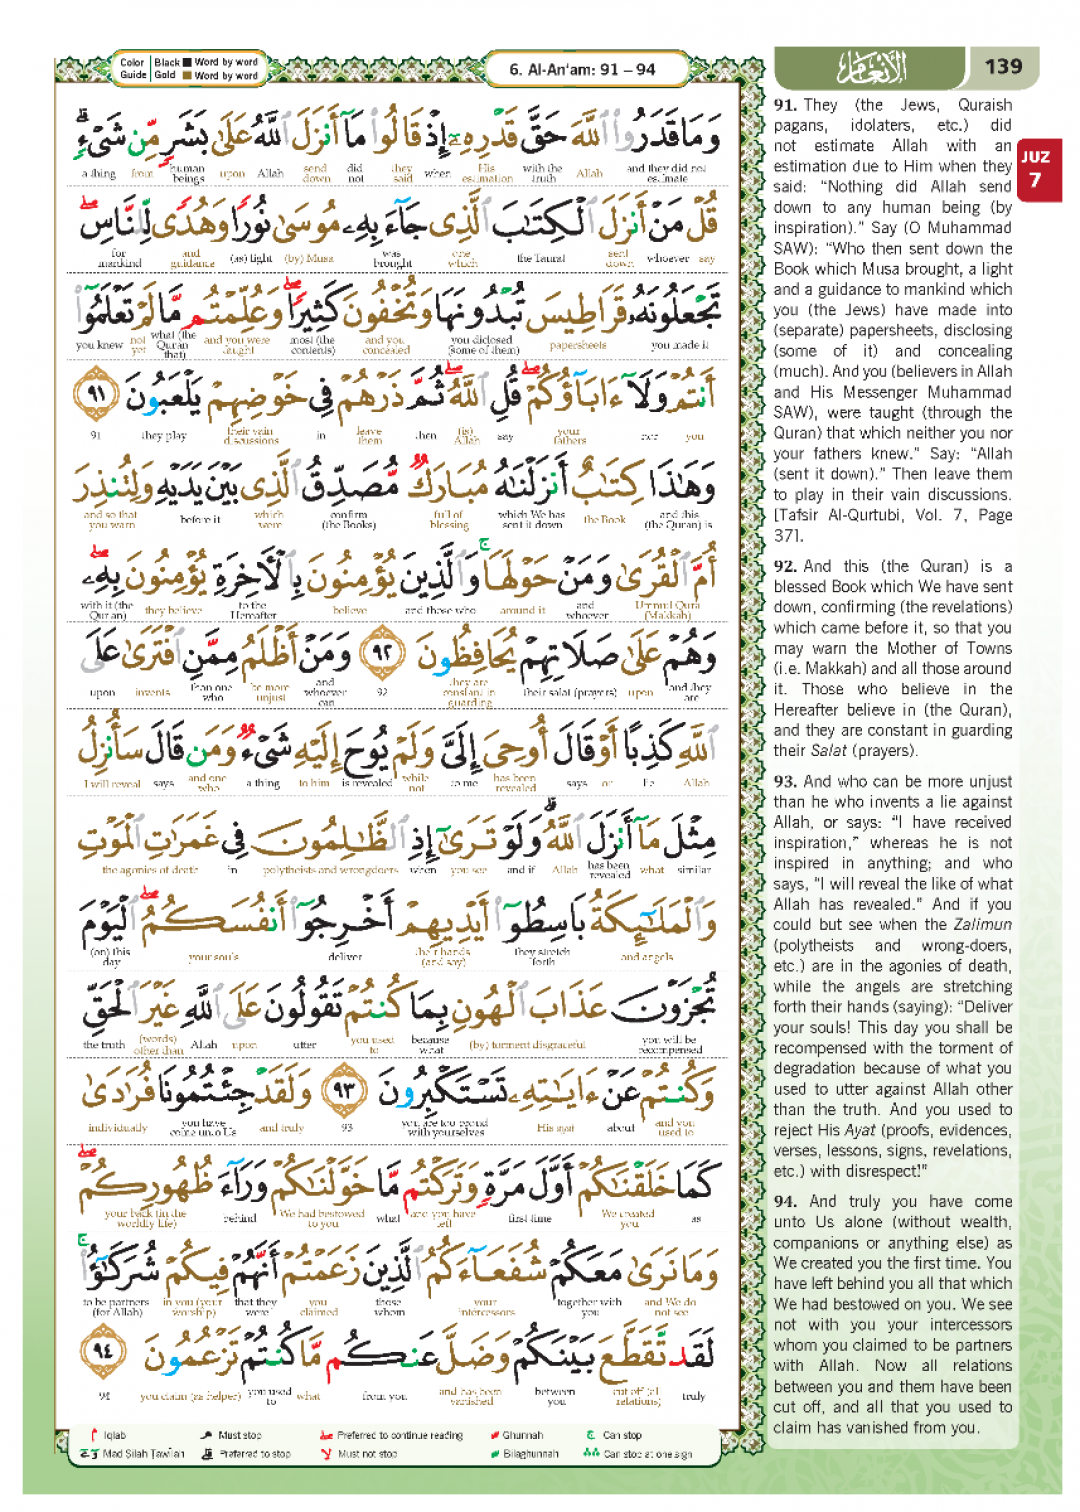 Color Guide Black Word by word
Gold Word by word
6. Al-An'am: 91 – 94
الأنعام
139
JUZ 7
وَمَا قَدَرُوا۟ ٱللَّهَ حَقَّ قَدْرِهِۦٓ إِذْ قَالُوا۟ مَآ أَنزَلَ ٱللَّهُ عَلَىٰ بَشَرٍ مِّن شَىْءٍ ۗ
a thing from human beings upon Allah send down did not they said when His estimation with the truth Allah and they did not estimate
قُلْ مَنْ أَنزَلَ ٱلْكِتَـٰبَ ٱلَّذِى جَآءَ بِهِۦ مُوسَىٰ نُورًا وَهُدًى لِّلنَّاسِ ۖ
for mankind and guidance (as) light (by) Musa was brought one which the Taurat sent down whoever say
تَجْعَلُونَهُۥ قَرَاطِيسَ تُبْدُونَهَا وَتُخْفُونَ كَثِيرًا ۖ وَعُلِّمْتُم مَّا لَمْ تَعْلَمُوٓا۟
you knew not yet what (the Quran that) and you were taught most (the contents) and you concealed you diclosed (some of them) papersheets you made it
أَنتُمْ وَلَآ ءَابَآؤُكُمْ ۖ قُلِ ٱللَّهُ ۖ ثُمَّ ذَرْهُمْ فِى خَوْضِهِمْ يَلْعَبُونَ ٩١
91 they play their vain discussions in leave them then (is) Allah say your fathers nor you
وَهَـٰذَا كِتَـٰبٌ أَنزَلْنَـٰهُ مُبَارَكٌ مُّصَدِّقُ ٱلَّذِى بَيْنَ يَدَيْهِ وَلِتُنذِرَ
and so that you warn before it which were confirm (the Books) full of blessing which We has sent it down the Book and this (the Quran) is
أُمَّ ٱلْقُرَىٰ وَمَنْ حَوْلَهَا ۚ وَٱلَّذِينَ يُؤْمِنُونَ بِٱلْـَٔاخِرَةِ يُؤْمِنُونَ بِهِۦ ۖ
with it (the Quran) they believe to the Hereafter believe and those who around it and whoever Ummul Qura (Makkah)
وَهُمْ عَلَىٰ صَلَاتِهِمْ يُحَافِظُونَ ٩٢ وَمَنْ أَظْلَمُ مِمَّنِ ٱفْتَرَىٰ عَلَى
upon invents than one who be more unjust and whoever can 92 they are constant in guarding their salat (prayers) upon and they are
ٱللَّهِ كَذِبًا أَوْ قَالَ أُوحِىَ إِلَىَّ وَلَمْ يُوحَ إِلَيْهِ شَىْءٌ وَمَن قَالَ سَأُنزِلُ
I will reveal says and one who a thing to him is revealed while not to me has been revealed says or lie Allah
مِثْلَ مَآ أَنزَلَ ٱللَّهُ ۗ وَلَوْ تَرَىٰٓ إِذِ ٱلظَّـٰلِمُونَ فِى غَمَرَٰتِ ٱلْمَوْتِ
the agonies of death in polytheists and wrongdoers when you see and if Allah has been revealed what similar
وَٱلْمَلَـٰٓئِكَةُ بَاسِطُوٓا۟ أَيْدِيهِمْ أَخْرِجُوٓا۟ أَنفُسَكُمُ ۖ ٱلْيَوْمَ
(on) this day your souls deliver their hands (and say) they stretch forth and angels
تُجْزَوْنَ عَذَابَ ٱلْهُونِ بِمَا كُنتُمْ تَقُولُونَ عَلَى ٱللَّهِ غَيْرَ ٱلْحَقِّ
the truth (words) other than Allah upon utter you used to because what (by) torment disgraceful you will be recompensed
وَكُنتُمْ عَنْ ءَايَـٰتِهِۦ تَسْتَكْبِرُونَ ٩٣ وَلَقَدْ جِئْتُمُونَا فُرَٰدَىٰ
individually you have come unto Us and truly 93 you are too proud with yourselves His ayat about and you used to
كَمَا خَلَقْنَـٰكُمْ أَوَّلَ مَرَّةٍ وَتَرَكْتُم مَّا خَوَّلْنَـٰكُمْ وَرَآءَ ظُهُورِكُمْ ۖ
your back (in the worldly life) behind We had bestowed to you what and you have left first time We created you as
وَمَا نَرَىٰ مَعَكُمْ شُفَعَآءَكُمُ ٱلَّذِينَ زَعَمْتُمْ أَنَّهُمْ فِيكُمْ شُرَكَـٰٓؤُا۟ ۚ
to be partners (for Allah) in you (your worship) that they were you claimed those whom your intercessors together with you and We do not see
لَقَد تَّقَطَّعَ بَيْنَكُمْ وَضَلَّ عَنكُم مَّا كُنتُمْ تَزْعُمُونَ ٩٤
94 you claim (as helper) you used to what from you and has been vanished between you cut off (all relations) truly
Iqlab Must stop Preferred to continue reading Ghunnah Can stop
Mad Silah Tawilah Preferred to stop Must not stop Bilaghunnah Can stop at one sign
91. They (the Jews, Quraish
pagans, idolaters, etc.) did
not estimate Allah with an
estimation due to Him when they
said: “Nothing did Allah send
down to any human being (by
inspiration).” Say (O Muhammad
SAW): “Who then sent down the
Book which Musa brought, a light
and a guidance to mankind which
you (the Jews) have made into
(separate) papersheets, disclosing
(some of it) and concealing
(much). And you (believers in Allah
and His Messenger Muhammad
SAW), were taught (through the
Quran) that which neither you nor
your fathers knew.” Say: “Allah
(sent it down).” Then leave them
to play in their vain discussions.
[Tafsir Al-Qurtubi, Vol. 7, Page
37].
92. And this (the Quran) is a
blessed Book which We have sent
down, confirming (the revelations)
which came before it, so that you
may warn the Mother of Towns
(i.e. Makkah) and all those around
it. Those who believe in the
Hereafter believe in (the Quran),
and they are constant in guarding
their Salat (prayers).
93. And who can be more unjust
than he who invents a lie against
Allah, or says: “I have received
inspiration,” whereas he is not
inspired in anything; and who
says, “I will reveal the like of what
Allah has revealed.” And if you
could but see when the Zalimun
(polytheists and wrong-doers,
etc.) are in the agonies of death,
while the angels are stretching
forth their hands (saying): “Deliver
your souls! This day you shall be
recompensed with the torment of
degradation because of what you
used to utter against Allah other
than the truth. And you used to
reject His Ayat (proofs, evidences,
verses, lessons, signs, revelations,
etc.) with disrespect!”
94. And truly you have come
unto Us alone (without wealth,
companions or anything else) as
We created you the first time. You
have left behind you all that which
We had bestowed on you. We see
not with you your intercessors
whom you claimed to be partners
with Allah. Now all relations
between you and them have been
cut off, and all that you used to
claim has vanished from you.